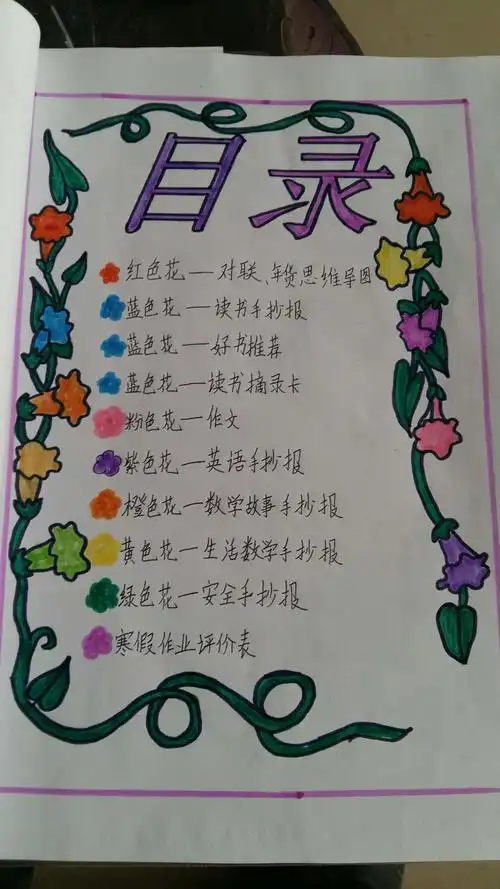 目录
红色花——对联、年货思维导图
蓝色花——读书手抄报
蓝色花——好书推荐
蓝色花——读书摘录卡
粉色花—作文
紫色花—英语手抄报
橙色花—数学故事手抄报
黄色花—生活数学手抄报
绿色花—安全手抄报
寒假作业评价表